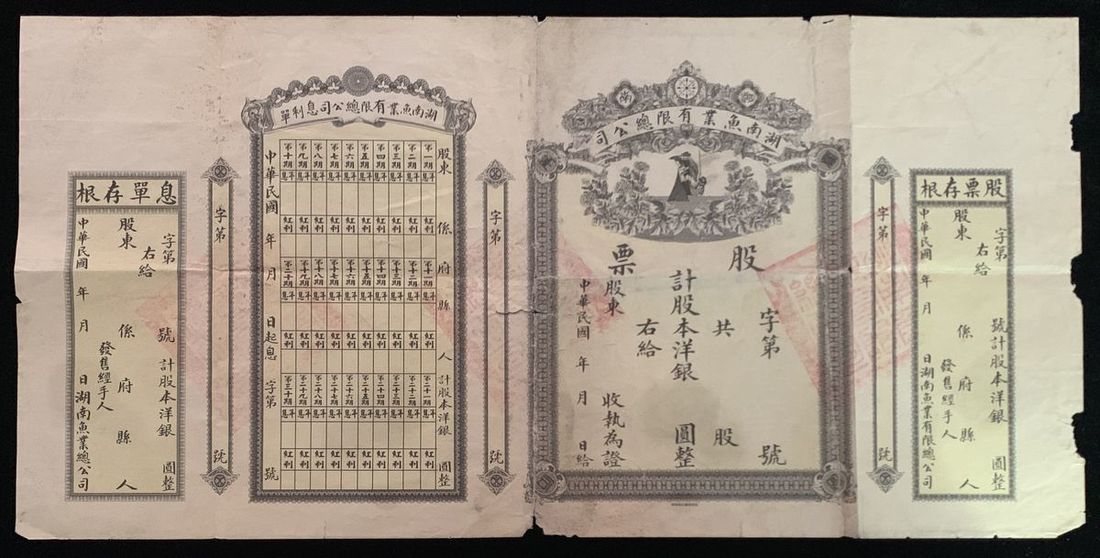 股票存根
字第 號計股本洋銀 圓整
右給
股東 係 府 縣 人
發售經手人
中華民國 年 月 日湖南魚業有限總公司
字第 號
湖南魚業有限總公司
股票
字第 號
共 股
計股本洋銀 圓整
右給
股東 收執為證
中華民國 年 月 日給
字第 號
湖南魚業有限總公司息利單
股東 係 府 縣 人 計股本洋銀 圓整
第一期 第二期 第三期 第四期 第五期 第六期 第七期 第八期 第九期 第十期
子息 子息 子息 子息 子息 子息 子息 子息 子息 子息
紅利 紅利 紅利 紅利 紅利 紅利 紅利 紅利 紅利 紅利
第十一期 第十二期 第十三期 第十四期 第十五期 第十六期 第十七期 第十八期 第十九期 第二十期
子息 子息 子息 子息 子息 子息 子息 子息 子息 子息
紅利 紅利 紅利 紅利 紅利 紅利 紅利 紅利 紅利 紅利
第二十一期 第二十二期 第二十三期 第二十四期 第二十五期 第二十六期 第二十七期 第二十八期 第二十九期 第三十期
子息 子息 子息 子息 子息 子息 子息 子息 子息 子息
紅利 紅利 紅利 紅利 紅利 紅利 紅利 紅利 紅利 紅利
中華民國 年 月 日起息 字第 號
字第 號
息單存根
字第 號計股本洋銀 圓整
右給
股東 係 府 縣 人
發售經手人
中華民國 年 月 日湖南魚業總公司